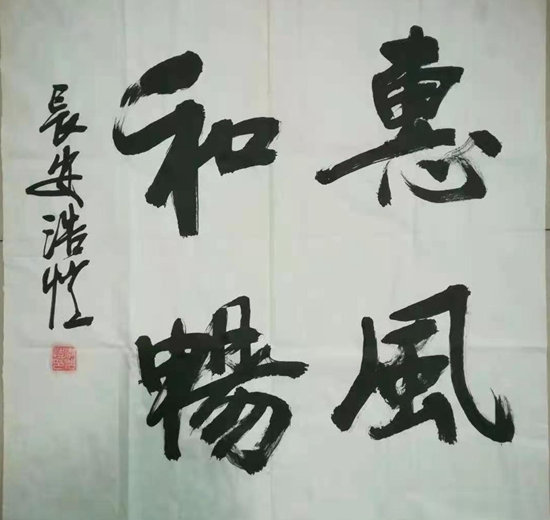 惠風
和暢
長安浩恺